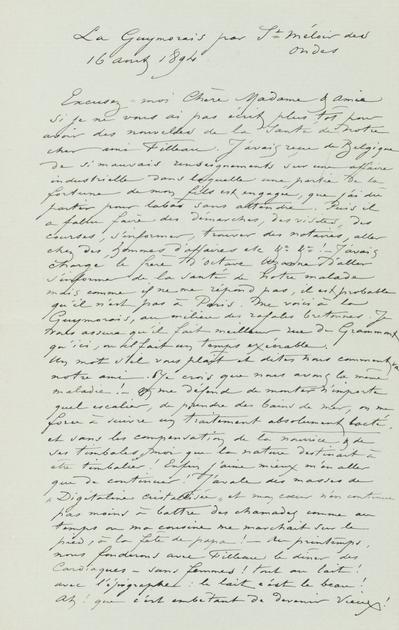 La Guymorais par St Méloir des
Ondes
16 août 1894
Excusez-moi Chère Madame & Amie
si je ne vous ai pas écrit plus tôt pour
avoir des nouvelles de la Santé de Notre
cher ami Filleau. J'avais reçu de Belgique
de si mauvais renseignements sur une affaire
industrielle dans laquelle une partie de la
fortune de mon fils est engagée, que j'ai dû
partir pour labas sans attendre. Puis il
a fallu faire des démarches, des visites, des
courses, s'informer, trouver des notaires, aller
chez des hommes d'affaires etc &c &c! J'avais
chargé le père d'Octave Uzanne d'aller
s'informer de la santé de Notre malade
mais comme il ne me répond pas, il est probable
qu'il n'est pas à Paris. Me voici à la
Guymorais, au milieu des rafales bretonnes. Je
vous assure qu'il fait meilleur rue de Grammont
qu'ici, où il fait un temps exécrable.
Un mot s'il vous plaît et dites nous comment va
notre ami. Je crois que nous avons la même
maladie! – On me défend de monter n'importe
quel escalier, de prendre des bains de mer, on me
force à suivre un traitement absolument lacté,
et sans les compensations de la nourrice & de
ses timbales, moi que la nature destinait à
être timbalier! Enfin j'aime mieux m'en aller
que de continuer! J'avale des masses de
"Digitaline cristallisée" et mon cœur n'en continue
pas moins à battre des chamades comme au
temps où ma cousine me marchait sur le
pied, à la fête de papa! – Au printemps,
nous fonderons avec Filleau le dîner des
Cardiaques – sans femmes! tout au lait!
avec l'épigraphe: le lait c'est le beau!
Ah! que c'est embêtant de devenir vieux!